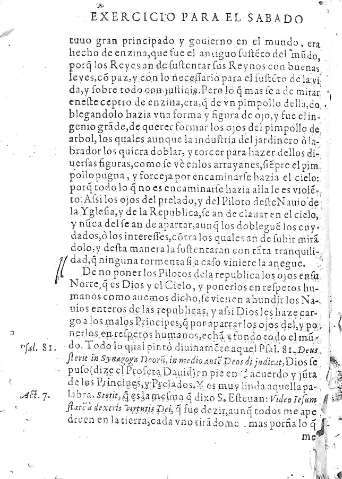 EXERCICIO PARA EL SABADO
tuuo gran principado y gouierno en el mundo, era
hecho de enzina, que fue el antiguo sustēto del mūdo,
porq̄ los Reyes an de sustentar sus Reynos con buenas
leyes, cō paz, y con lo necessario para el sustēto de la vi
da, y sobre todo con justicia. Pero lo q̄ mas se a de mirar
en este ceptro de enzina, era, q̄ de vn pimpollo della, do
blegandolo hazia vna forma y figura de ojo, y fue el in-
genio grāde, de querer formar los ojos del pimpollo de
arbol, los quales aunque la industria del jardinero ò la-
brador los quiera doblar, y torcer para hazer dellos di
uersas figuras, como se vè en los arrayanes, siēpre el pim
pollo pugna, y forceja por encaminarse hazia el cielo:
porq̄ todo lo q̄ no es encaminarse hazia alla le es violē-
to: Assi los ojos del prelado, y del Piloto deste Nauio de
la Yglesia, y de la Republica, se an de clauar en el cielo,
y nūca del se an de apartar, aunq̄ los dobleguē los cuy
dados, ò los interesses, cōtra los quales an de subir mirā
dolo, y desta manera la sustentaran con tāta tranquili-
dad, q̄ ninguna tormenta si a caso viniere la anegue.
De no poner los Pilotos de la republica los ojos en su
Norte, q̄ es Dios y el Cielo, y ponerlos en respetos hu-
manos como auemos dicho, se vienen a hundir los Na-
uios enteros de las republicas, y assi Dios les haze car-
go a los malos Principes, q̄ por apartar los ojos del, y po
nerlos en respetos humanos, echā a fondo todo el mū-
Psal. 81. do. Todo lo qual pintò diuinamēte aquel Psal. 81. Deus
stetit in Synagoga Deorū, in medio autē Deus dijudicat, Dios se
puso (dize el Profeta Dauid) en pie en el acuerdo y jūta
de los Principes, y Prelados. Y es muy linda aquella pa-
Act. 7. labra. Stetit, q̄ es la mesma q̄ dixo S. Esteuan: Video Iesum
stātē a dextris virtutis Dei, q̄ fue dezir, aunq̄ todos me ape
dreen en la tierra, cada vno tirādome mas porfia lo q̄
me